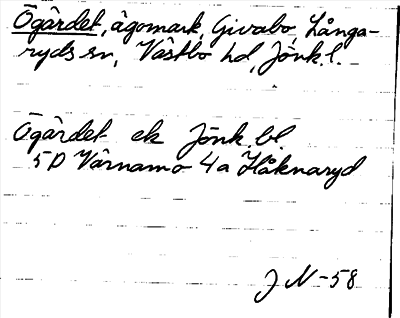 Ögärdet, ägomark, Givabo, Långa-
ryds sn, Västbo hd, Jönk.l.
Ögärdet ek Jönk. bl.
5D Värnamo 4a Håknaryd
J N-58